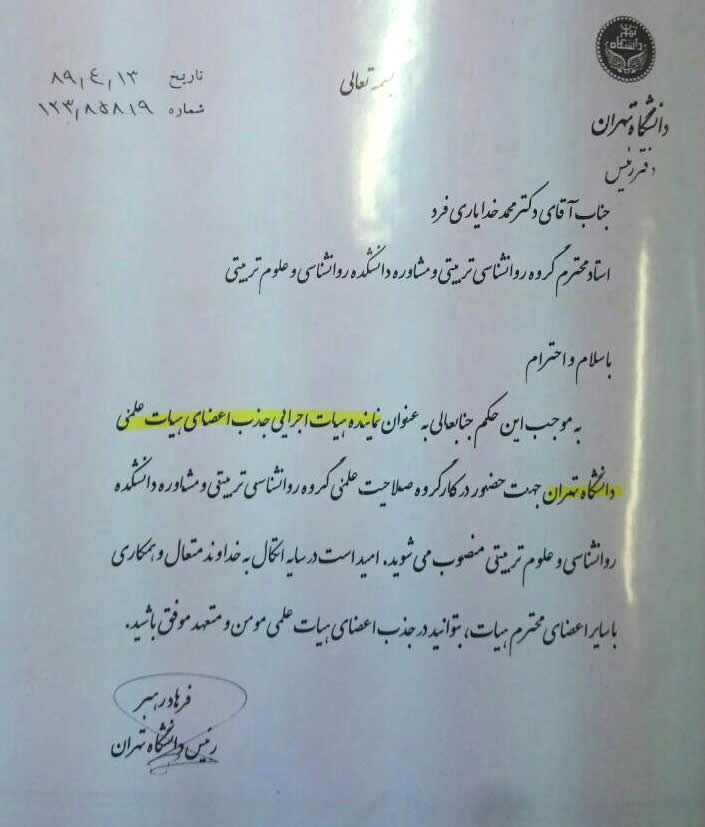 بسمه تعالی
تاریخ ۸۹٫۴٫۱۳
شماره ۱۲۳٫۸۵۸۱۹
دانشگاه تهران
دفتر رئیس
جناب آقای دکتر محمد خدایاری فرد
استاد محترم گروه روانشناسی تربیتی و مشاوره دانشکده روانشناسی و علوم تربیتی
با سلام و احترام
به موجب این حکم جنابعالی به عنوان نماینده هیات اجرایی جذب اعضای هیات علمی
دانشگاه تهران جهت حضور در کارگروه صلاحیت علمی گروه روانشناسی تربیتی و مشاوره دانشکده
روانشناسی و علوم تربیتی منصوب می شوید. امید است در سایه اتکال به خداوند متعال و همکاری
با سایر اعضای محترم هیات، بتوانید در جذب اعضای هیات علمی مومن و متعهد موفق باشید.
فرهاد رهبر
رئیس دانشگاه تهران